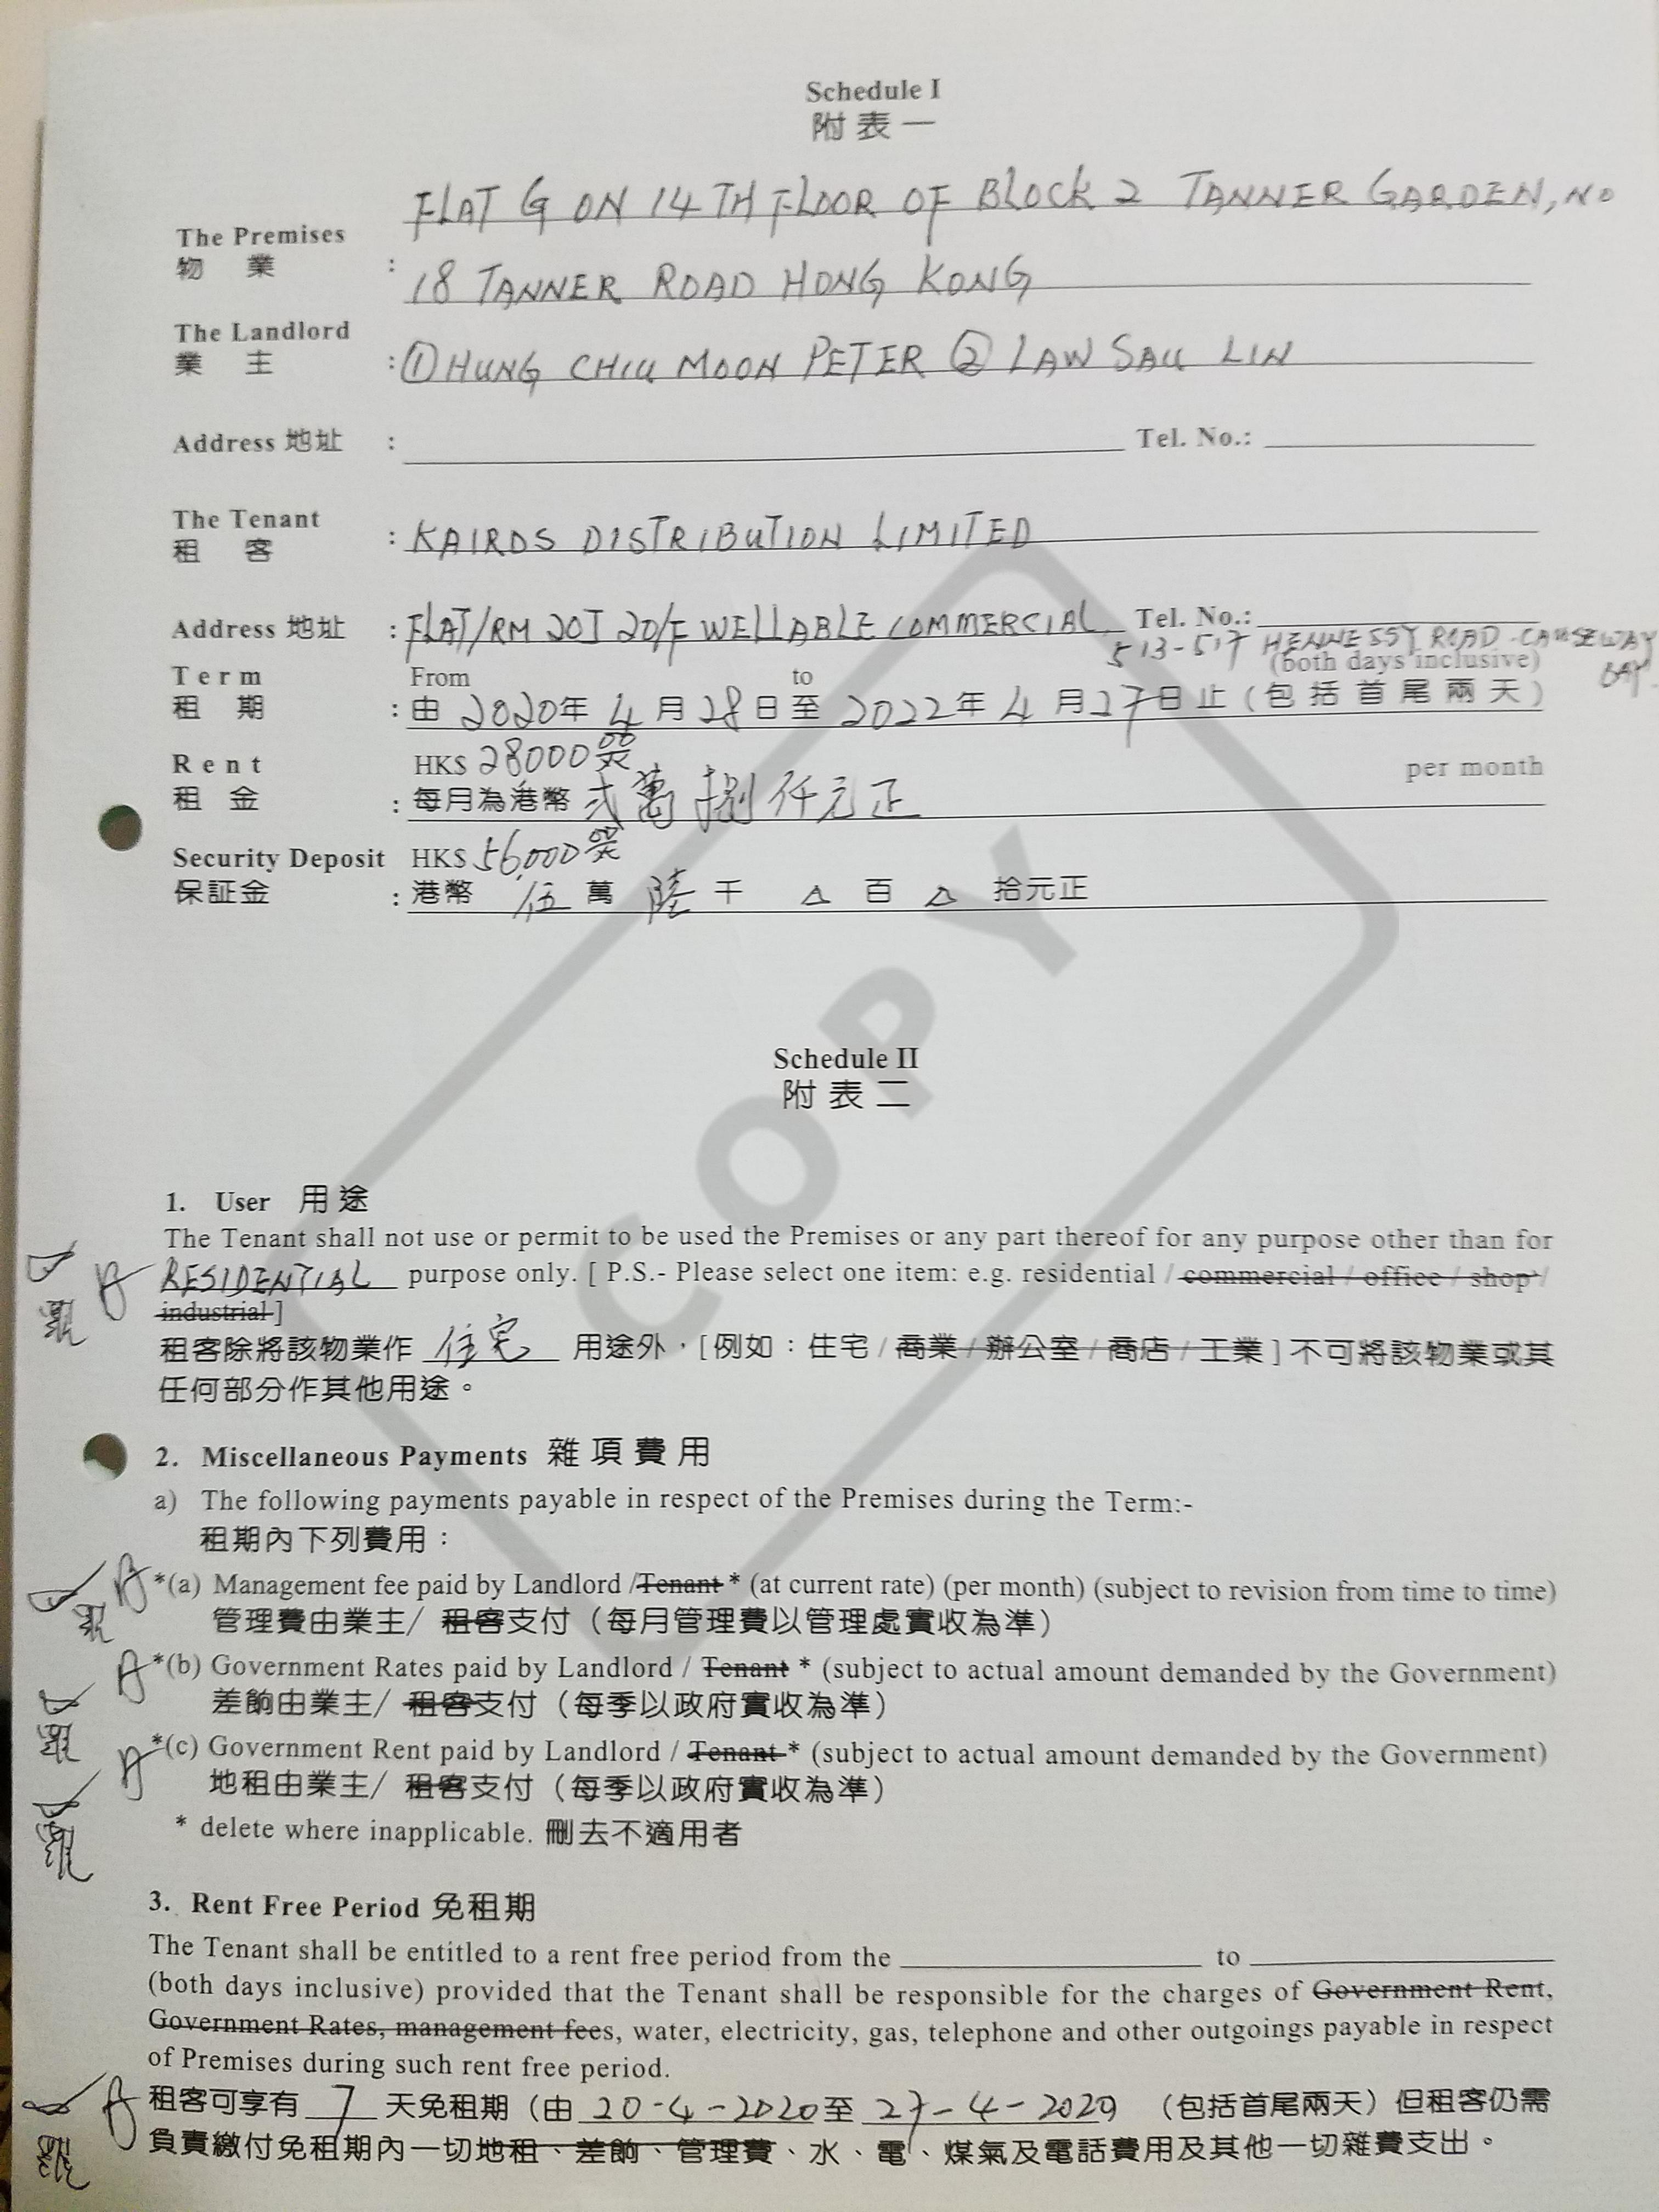 Schedule I
附表一
FLAT G ON 14TH FLOOR OF BLOCK 2 TANNER GARDEN, NO
The Premises
物 業 :
18 TANNER ROAD HONG KONG
The Landlord
業 主 : ① HUNG CHIU MOON PETER ② LAW SAU LIN
Address 地址 : Tel. No.:
The Tenant
租 客 : KAIROS DISTRIBUTION LIMITED
Address 地址 : FLAT/RM 20J 20/F WELLABLE COMMERCIAL Tel. No.:
513-517 HENNESSY ROAD CAUSEWAY
BAY.
Term From to (both days inclusive)
租 期 : 由 2020年 4 月 28 日至 2022年 4 月 27日止 (包括首尾兩天)
Rent HK$ 28000 per month
租 金 : 每月為港幣 弍萬捌仟元正
Security Deposit HK$ 56,000
保証金 : 港幣 伍 萬 陸 千 △ 百 △ 拾元正
COPY
Schedule II
附表二
1. User 用途
The Tenant shall not use or permit to be used the Premises or any part thereof for any purpose other than for
RESIDENTIAL purpose only. [ P.S.- Please select one item: e.g. residential / commercial / office / shop /
industrial ]
租客除將該物業作 住宅 用途外，[例如：住宅 / 商業 / 辦公室 / 商店 / 工業 ] 不可將該物業或其
任何部分作其他用途。
2. Miscellaneous Payments 雜項費用
a) The following payments payable in respect of the Premises during the Term:-
租期內下列費用：
*(a) Management fee paid by Landlord /Tenant * (at current rate) (per month) (subject to revision from time to time)
管理費由業主/ 租客支付（每月管理費以管理處實收為準）
*(b) Government Rates paid by Landlord / Tenant * (subject to actual amount demanded by the Government)
差餉由業主/ 租客支付（每季以政府實收為準）
*(c) Government Rent paid by Landlord / Tenant * (subject to actual amount demanded by the Government)
地租由業主/ 租客支付（每季以政府實收為準）
* delete where inapplicable. 刪去不適用者
3. Rent Free Period 免租期
The Tenant shall be entitled to a rent free period from the to
(both days inclusive) provided that the Tenant shall be responsible for the charges of Government Rent,
Government Rates, management fees, water, electricity, gas, telephone and other outgoings payable in respect
of Premises during such rent free period.
租客可享有 7 天免租期（由 20-4-2020至 27-4-2020 （包括首尾兩天）但租客仍需
負責繳付免租期內一切地租、差餉、管理費、水、電、煤氣及電話費用及其他一切雜費支出。